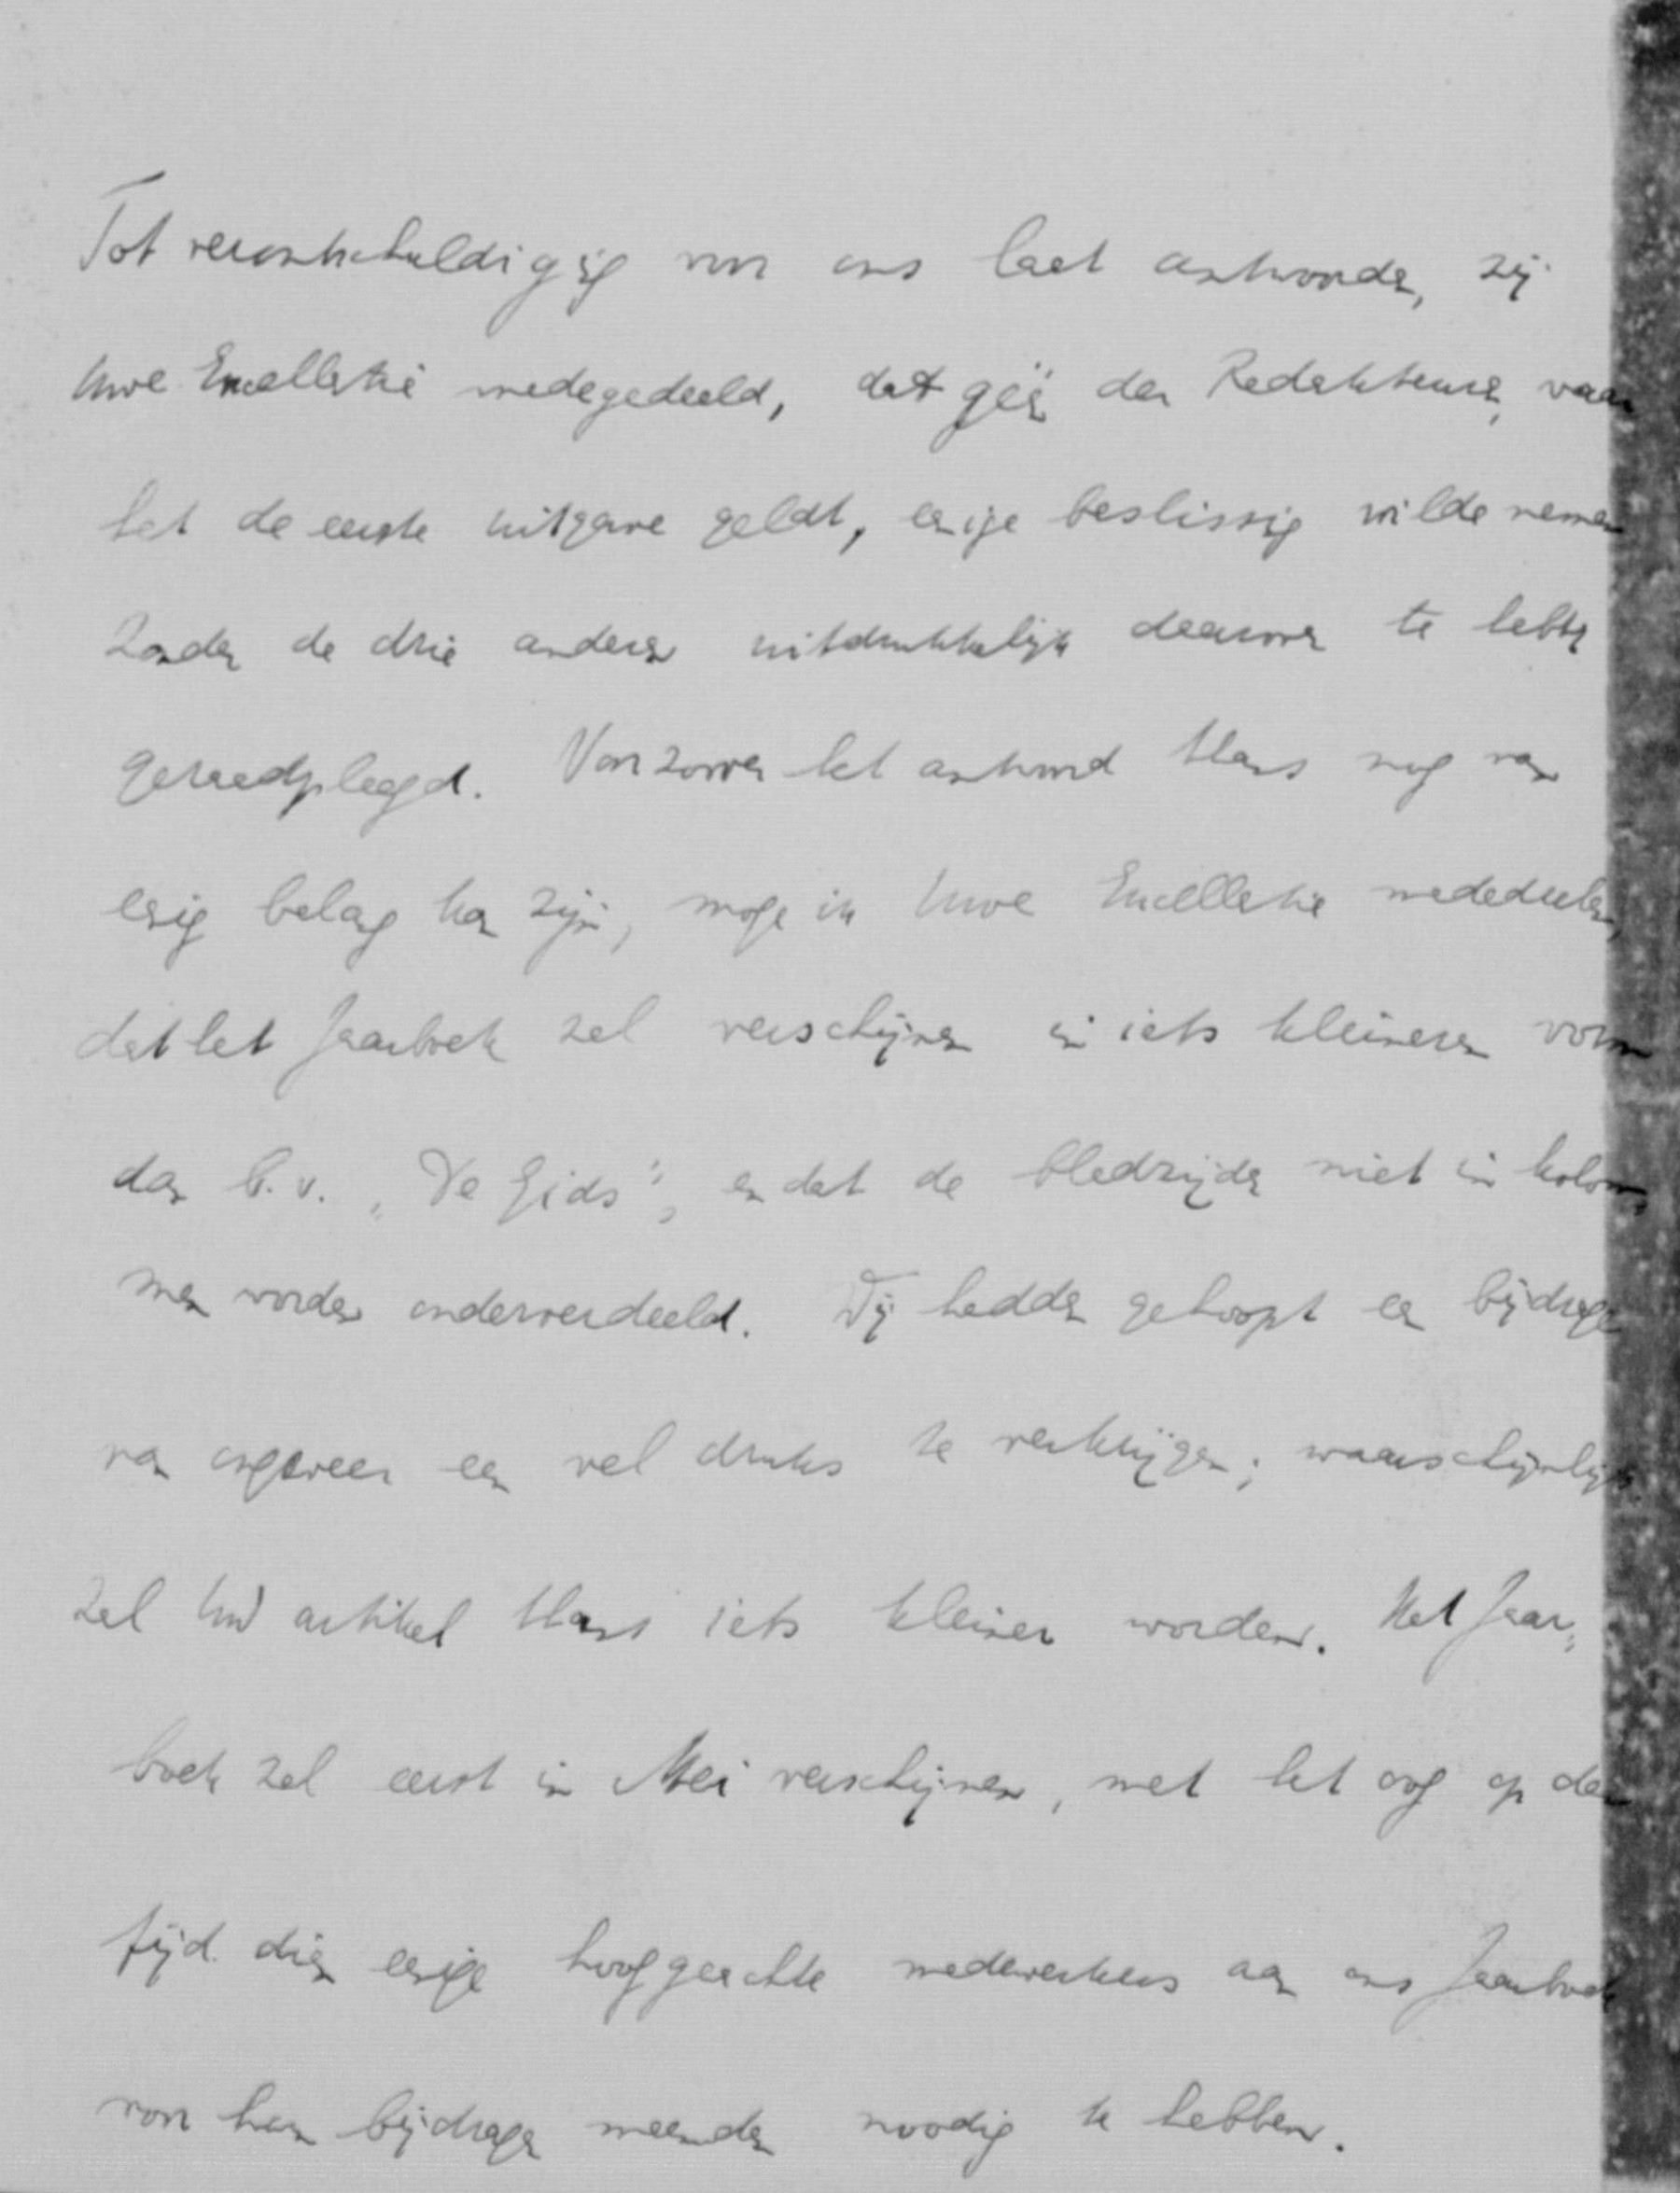 Tot verontschuldiging voor ons laat antwoorden, zij
Uwe Excellentie medegedeeld, dat géén der Redakteuren, waar
het de eerste uitgave geldt, enige beslissing wilde nemen
zonder de drie anderen uitdrukkelijk daarover te hebben
geraadpleegd. Voor zoover het antwoord thans nog van
enig belang kan zijn, moge ik Uwe Excellentie mededeelen,
dat het Jaarboek zal verschijnen in iets kleineren vorm
dan b.v. „De Gids", en dat de bladzijden niet in kolom=
men worden onderverdeeld. Wij hadden gehoopt een bijdrage
van ongeveer een vel druks te verkrijgen; waarschijnlijk
zal Uw artikel thans iets kleiner worden. Het Jaar=
boek zal eerst in Mei verschijnen, met het oog op den
tijd dien enige hooggeachte medewerkers aan ons Jaarboek
voor hun bijdragen meenden noodig te hebben.